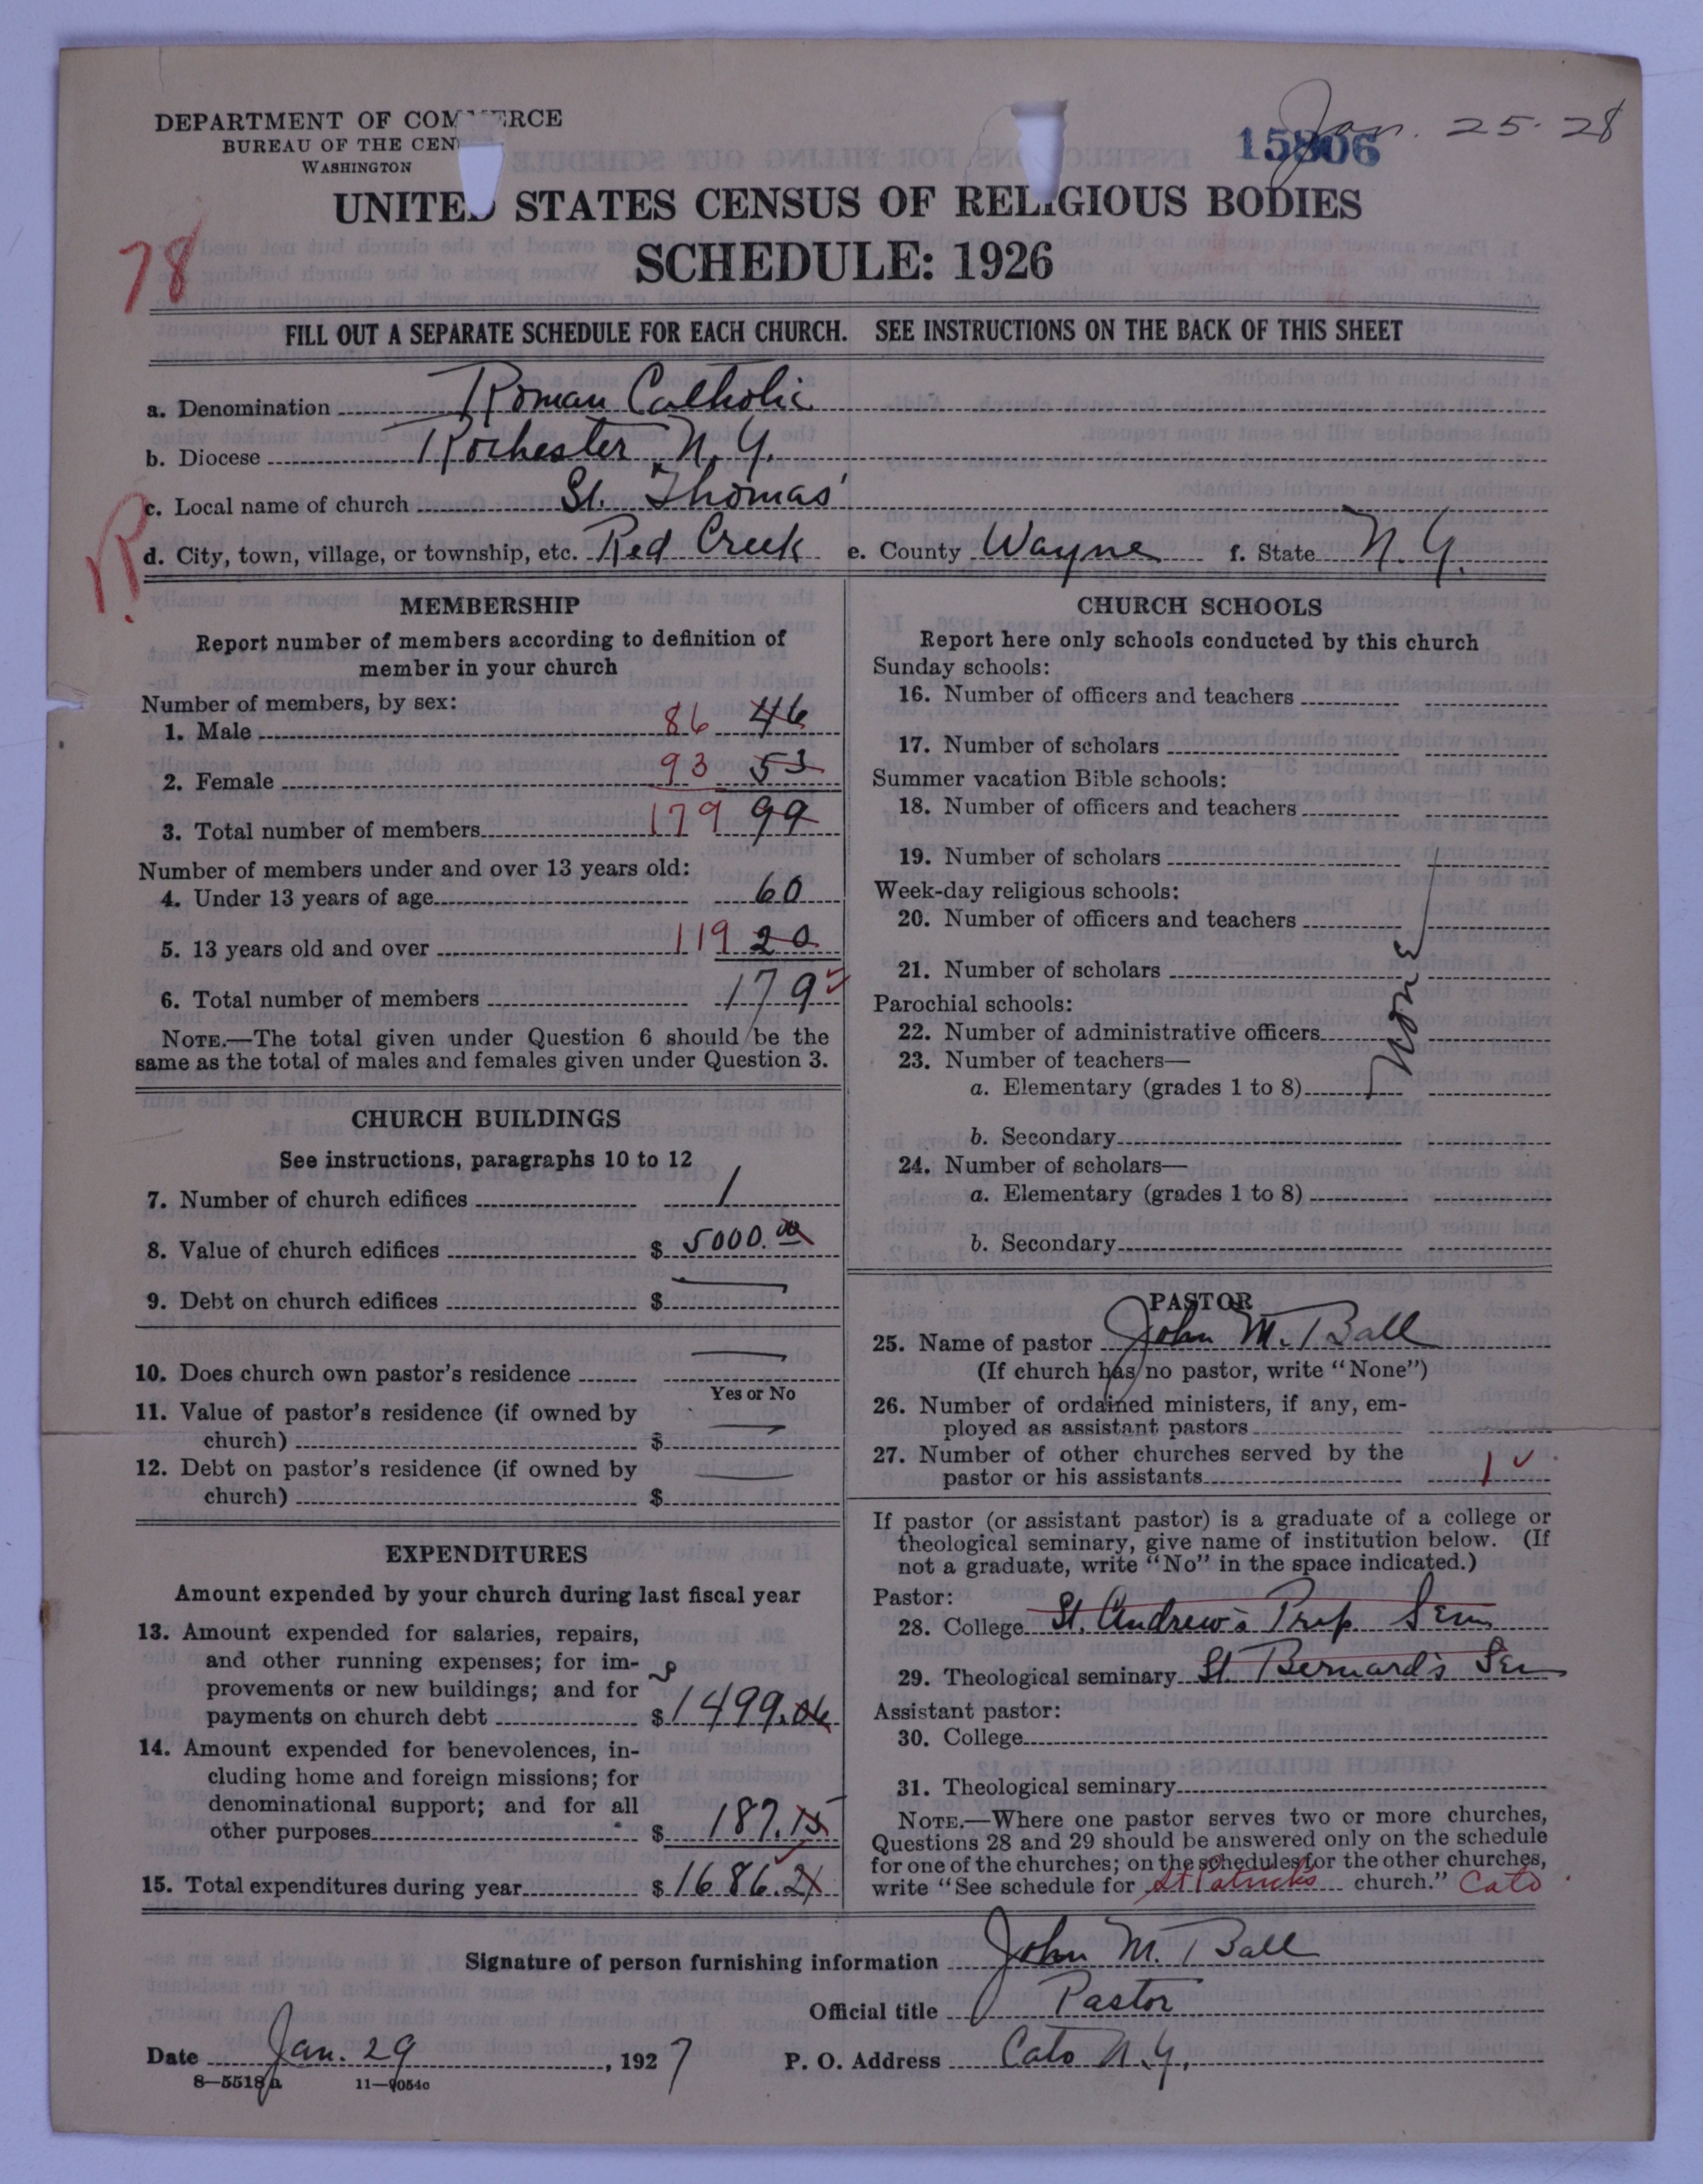 DEPARTMENT OF COMMERCE
BUREAU OF THE CEN
WASHINGTON
15806
Jan. 25-28
UNITED STATES CENSUS OF RELIGIOUS BODIES
SCHEDULE: 1926
78
FILL OUT A SEPARATE SCHEDULE FOR EACH CHURCH. SEE INSTRUCTIONS ON THE BACK OF THIS SHEET
a. Denomination Roman Catholic
b. Diocese Rochester N.Y.
c. Local name of church St. Thomas'
R
d. City, town, village, or township, etc. Red Creek e. County Wayne f. State N.Y.
MEMBERSHIP
Report number of members according to definition of
member in your church
Number of members, by sex:
1. Male 86 46
2. Female 93 53
3. Total number of members 179 99
Number of members under and over 13 years old:
4. Under 13 years of age 60
5. 13 years old and over 119 20
6. Total number of members 179
NOTE.—The total given under Question 6 should be the
same as the total of males and females given under Question 3.
CHURCH BUILDINGS
See instructions, paragraphs 10 to 12
7. Number of church edifices 1
8. Value of church edifices $ 5000.00
9. Debt on church edifices $ —
10. Does church own pastor's residence —
Yes or No
11. Value of pastor's residence (if owned by
church) $ —
12. Debt on pastor's residence (if owned by
church) $ —
EXPENDITURES
Amount expended by your church during last fiscal year
13. Amount expended for salaries, repairs,
and other running expenses; for im-
provements or new buildings; and for
payments on church debt $ 1499.06
14. Amount expended for benevolences, in-
cluding home and foreign missions; for
denominational support; and for all
other purposes $ 187.15
15. Total expenditures during year $ 1686.21
CHURCH SCHOOLS
Report here only schools conducted by this church
Sunday schools:
16. Number of officers and teachers
17. Number of scholars
Summer vacation Bible schools:
18. Number of officers and teachers
19. Number of scholars
Week-day religious schools:
20. Number of officers and teachers
21. Number of scholars
None
Parochial schools:
22. Number of administrative officers
23. Number of teachers—
a. Elementary (grades 1 to 8)
b. Secondary
24. Number of scholars—
a. Elementary (grades 1 to 8)
b. Secondary
PASTOR
25. Name of pastor John M. Ball
(If church has no pastor, write "None")
26. Number of ordained ministers, if any, em-
ployed as assistant pastors
27. Number of other churches served by the
pastor or his assistants 1
If pastor (or assistant pastor) is a graduate of a college or
theological seminary, give name of institution below. (If
not a graduate, write "No" in the space indicated.)
Pastor:
28. College St. Andrew's Prep Sem
29. Theological seminary St. Bernard's Sem
Assistant pastor:
30. College
31. Theological seminary
NOTE.—Where one pastor serves two or more churches,
Questions 28 and 29 should be answered only on the schedule
for one of the churches; on the schedules for the other churches,
write "See schedule for St Patricks church." Cato
Signature of person furnishing information John M. Ball
Official title Pastor
Date Jan. 29, 1927 P. O. Address Cato N.Y.
8—5518a 11—9054c